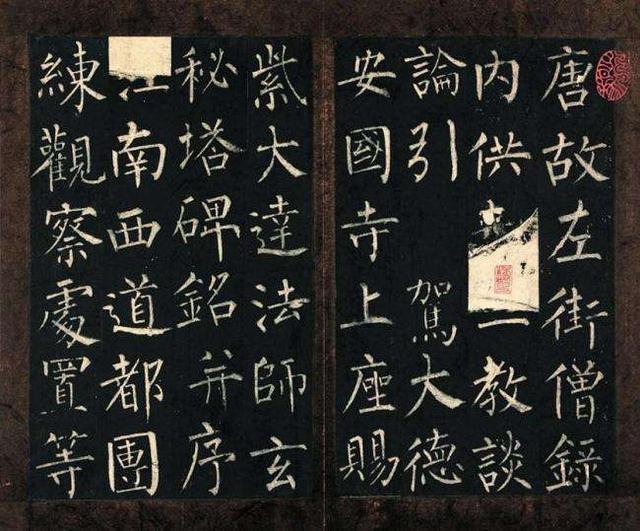 唐故左街僧錄
内供一教談
論引駕大德
安國寺上座賜
紫大達法師玄
秘塔碑銘并序
江南西道都團
練觀察處置等